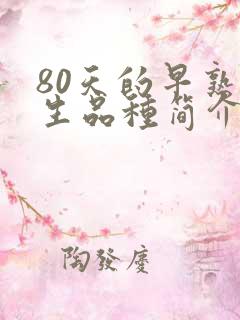 80天的早熟
生品種简介
陶發慶